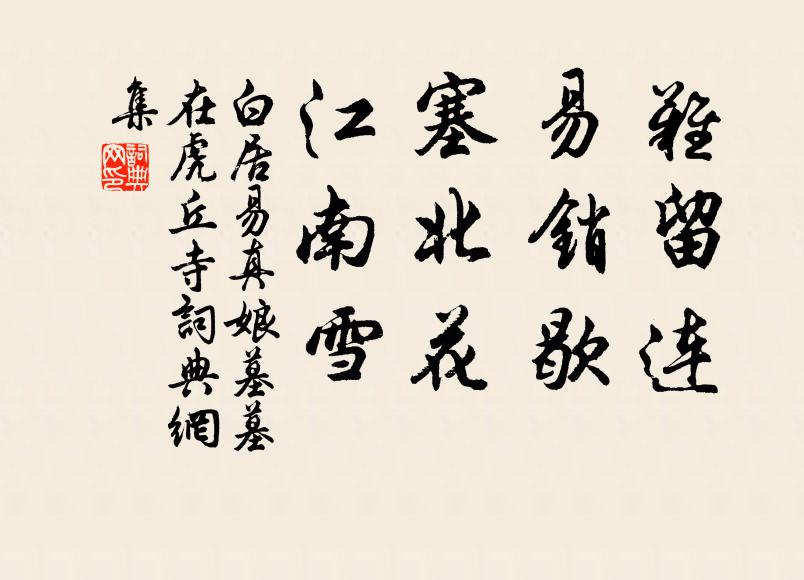 難留連
易銷歇
塞北花
江南雪
白居易真娘墓墓
在虎丘寺詞典網
集
詞典
网印